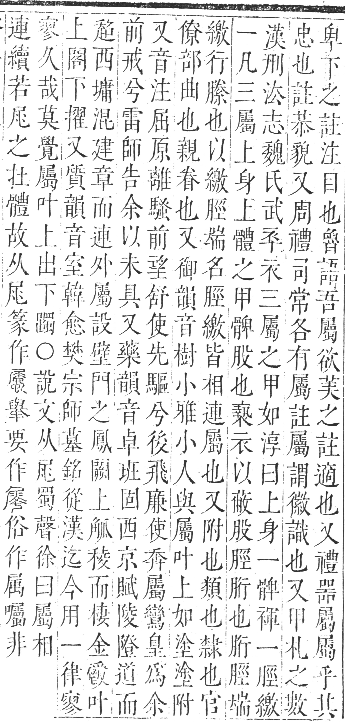 卑下之註注目也晉語吾屬欲芙之註適也又禮器屬屬乎其
忠也註恭貌又周禮司常各有屬註屬謂徽識也又甲札之數
漢刑法志魏氏武卒衣三屬之甲如淳曰上身一髀褌一脛繳
一凡三屬上身上體之甲髀股也褰衣以蔽股脛䯒也䯒脛耑
繳行縢也以繳脛耑名脛繳皆相連屬也又附也類也隷也官
僚部曲也親眷也又御韻音樹小雅小人與屬叶上如塗塗附
又音注屈原離騷前望舒使先驅兮後飛廉使奔屬鸞皇爲余
前戒兮雷師告余以未具又藥韻音卓班固西京賦陵隥道而
超西墉混建章而連外屬設璧門之鳳闕上觚稜而棲金爵叶
上閣下擢又質韻音室韓愈樊宗師墓銘從漢迄今用一律寥
寥久哉莫覺屬叶上出下躅○說文从尾蜀聲徐曰屬相
連續若尾之在體故从尾篆作屬擧要作屬俗作属囑非